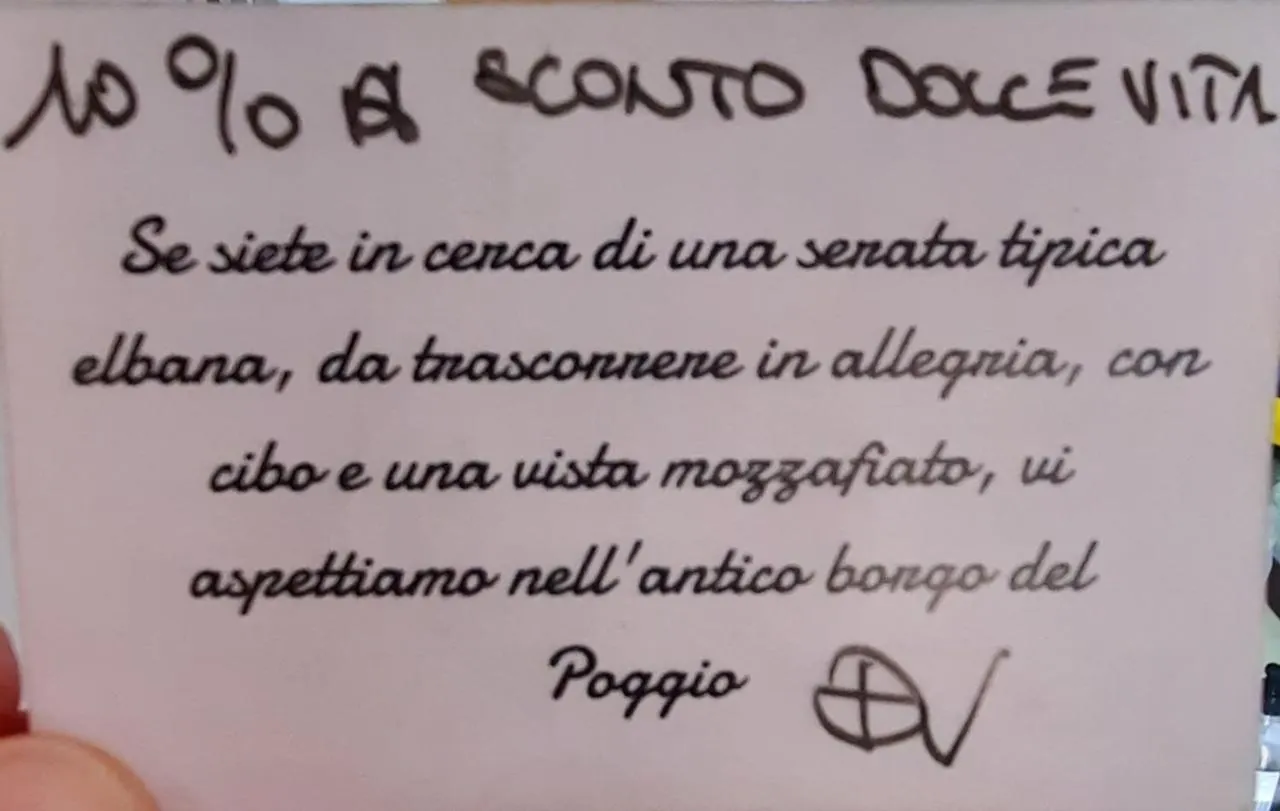 10% SCONTO DOLCE VITA
Se siete in cerca di una serata tipica
elbana, da trascorrere in allegria, con
cibo e una vista mozzafiato, vi
aspettiamo nell'antico borgo del
Poggio DV